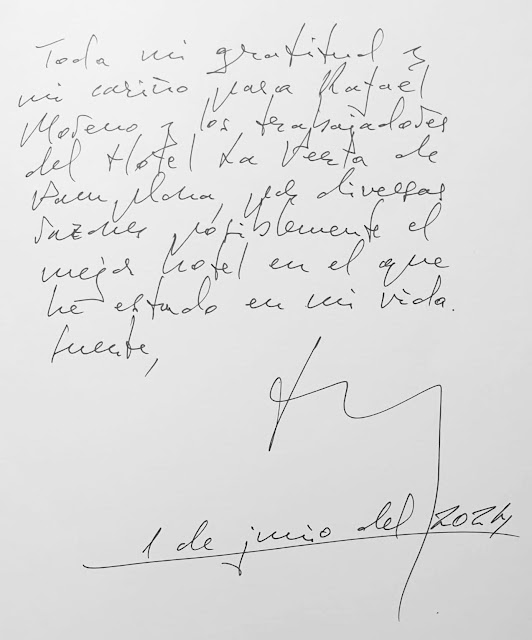 Toda mi gratitud y
mi cariño para Rafael
Moreno y los trabajadores
del Hotel La Perla de
Pamplona, por diversas
razones posiblemente el
mejor hotel en el que
he estado en mi vida.
Suerte,
1 de junio del 2024